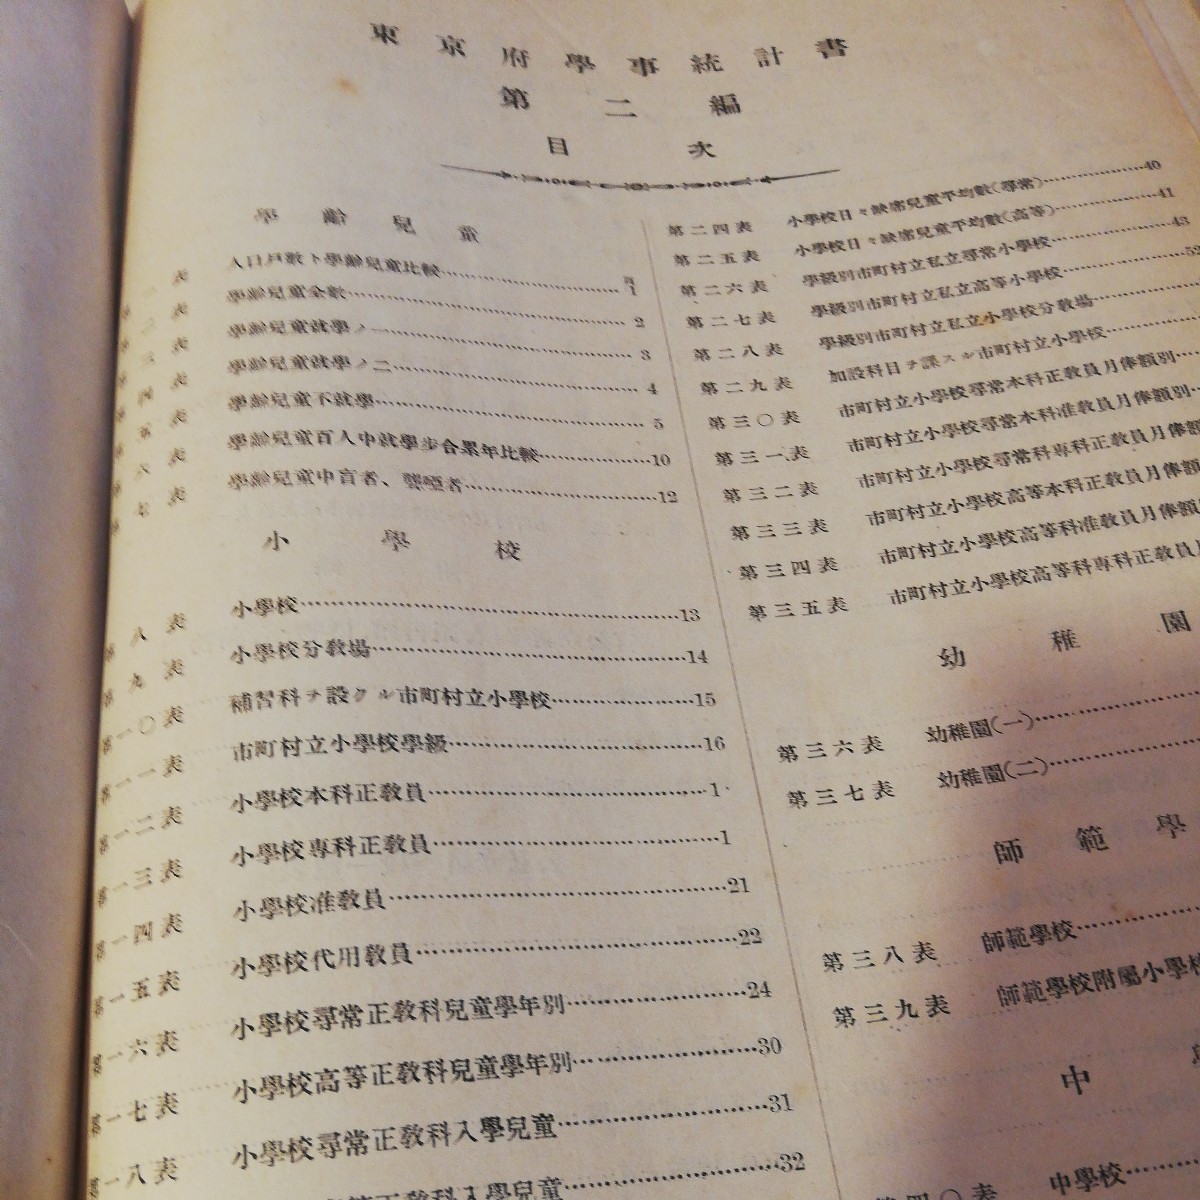 東京府學事統計書
第二編
目次
學齡兒童
一表 人口戸數ト學齡兒童比較 頁 1
二表 學齡兒童全數 2
三表 學齡兒童就學ノ一 3
四表 學齡兒童就學ノ二 4
五表 學齡兒童不就學 5
六表 學齡兒童百人中就學步合累年比較 10
第七表 學齡兒童中盲者、聾啞者 12
小學校
第八表 小學校 13
第九表 小學校分敎場 14
第一〇表 補習科ヲ設クル市町村立小學校 15
第一一表 市町村立小學校學級 16
第一二表 小學校本科正敎員 1
第一三表 小學校專科正敎員 1
第一四表 小學校准敎員 21
第一五表 小學校代用敎員 22
第一六表 小學校尋常正敎科兒童學年別 24
第一七表 小學校高等正敎科兒童學年別 30
第一八表 小學校尋常正敎科入學兒童 31
正敎科入學兒童 32
第二四表 小學校日々缺席兒童平均數(尋常) 40
第二五表 小學校日々缺席兒童平均數(高等) 41
第二六表 學級別市町村立私立尋常小學校 43
第二七表 學級別市町村立私立高等小學校 52
第二八表 學級別市町村立私立小學校分敎場
第二九表 加設科目ヲ課スル市町村立小學校
第三〇表 市町村立小學校尋常本科正敎員月俸額別
第三一表 市町村立小學校尋常本科准敎員月俸額別
第三二表 市町村立小學校尋常科專科正敎員月俸額
第三三表 市町村立小學校高等本科正敎員月俸額
第三四表 市町村立小學校高等科准敎員月俸額
第三五表 市町村立小學校高等科專科正敎員月
幼稚園
第三六表 幼稚園(一)
第三七表 幼稚園(二)
師範學
第三八表 師範學校
第三九表 師範學校附屬小學校
中
四〇表 中學校